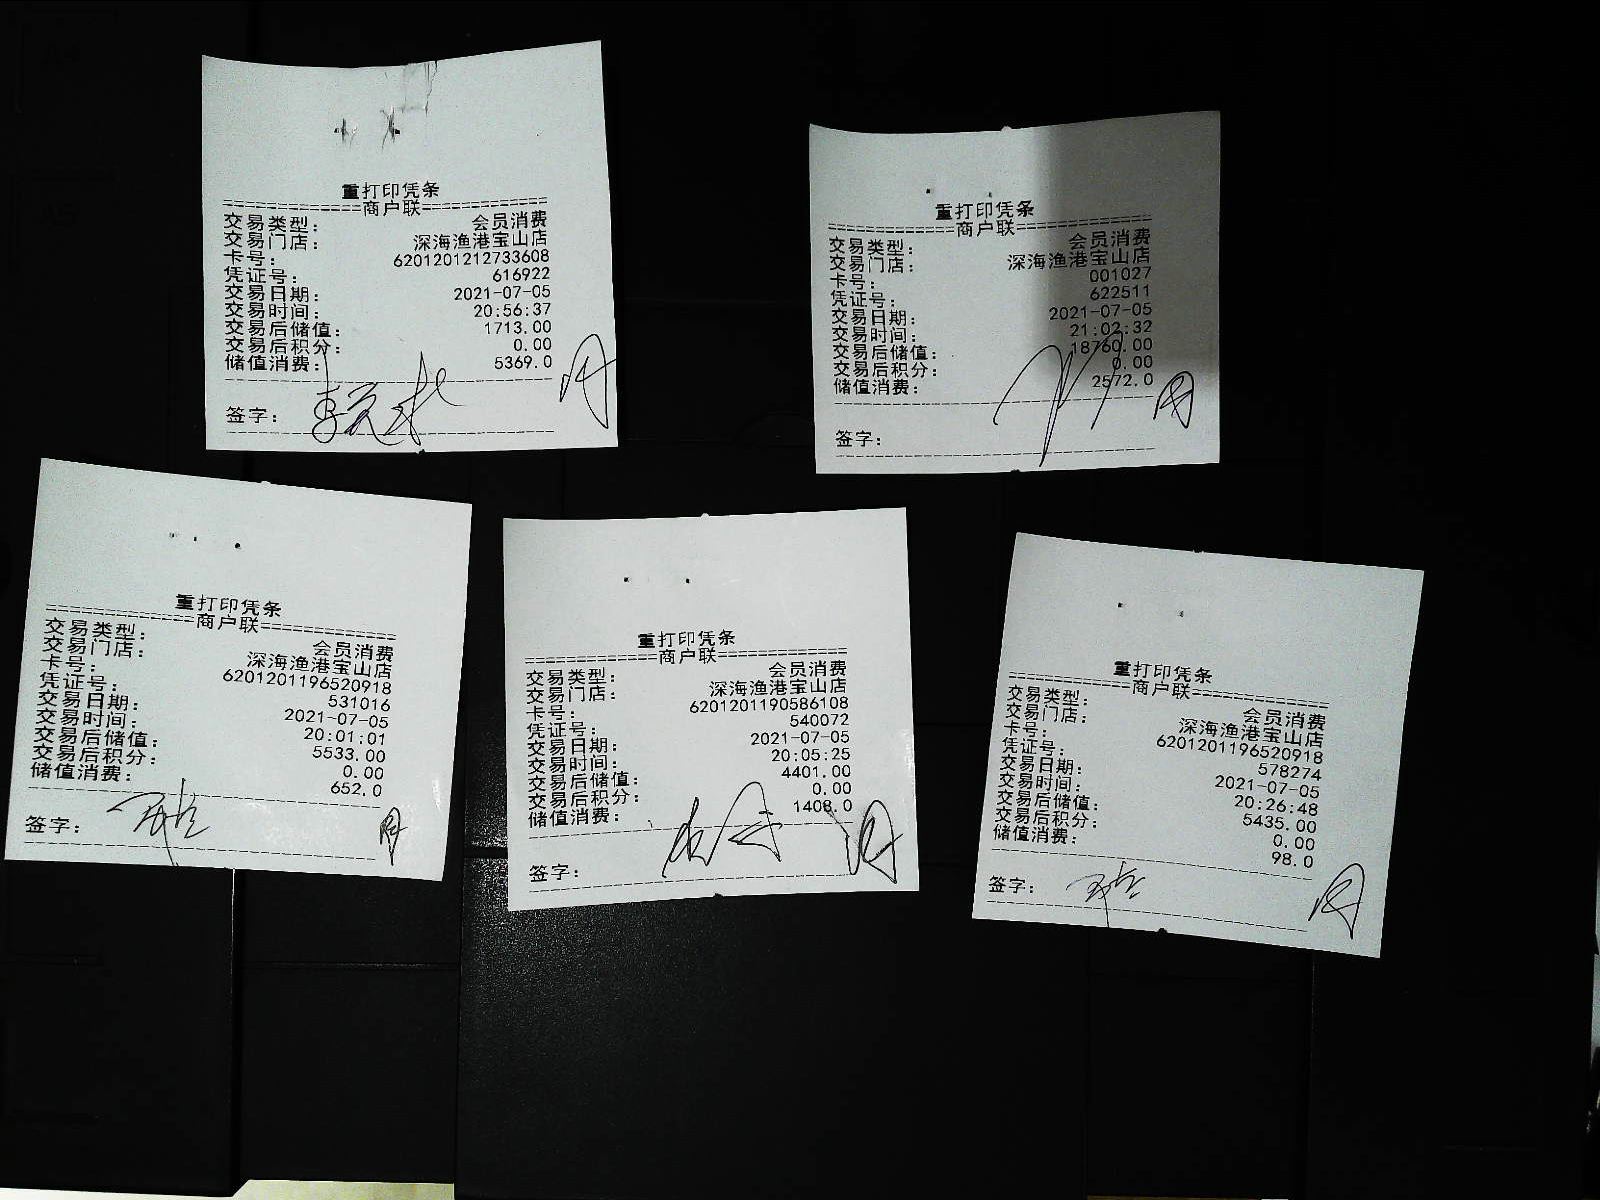 重打印凭条
==============商户联==============
交易类型： 会员消费
交易门店： 深海渔港宝山店
卡号： 6201201212733608
凭证号： 616922
交易日期： 2021-07-05
交易时间： 20:56:37
交易后储值： 1713.00
交易后积分： 0.00
储值消费： 5369.0
签字：
重打印凭条
==============商户联==============
交易类型： 会员消费
交易门店： 深海渔港宝山店
卡号： 001027
凭证号： 622511
交易日期： 2021-07-05
交易时间： 21:02:32
交易后储值： 18760.00
交易后积分： 0.00
储值消费： 2572.0
签字：
重打印凭条
==============商户联==============
交易类型： 会员消费
交易门店： 深海渔港宝山店
卡号： 6201201196520918
凭证号： 531016
交易日期： 2021-07-05
交易时间： 20:01:01
交易后储值： 5533.00
交易后积分： 0.00
储值消费： 652.0
签字：
重打印凭条
==============商户联==============
交易类型： 会员消费
交易门店： 深海渔港宝山店
卡号： 6201201190586108
凭证号： 540072
交易日期： 2021-07-05
交易时间： 20:05:25
交易后储值： 4401.00
交易后积分： 0.00
储值消费： 1408.0
签字：
重打印凭条
==============商户联==============
交易类型： 会员消费
交易门店： 深海渔港宝山店
卡号： 6201201196520918
凭证号： 578274
交易日期： 2021-07-05
交易时间： 20:26:48
交易后储值： 5435.00
交易后积分： 0.00
储值消费： 98.0
签字：